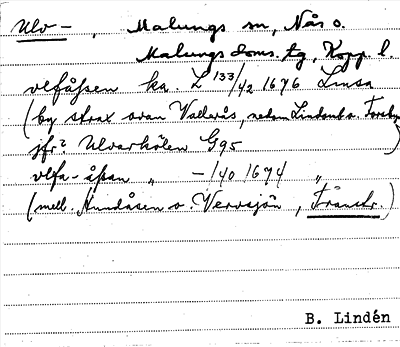 Ulv-, Malungs sn, Nås o.
Malungs doms. tg, Kopp. l.
vlfåssen ka. L 133/42 1676 Limsa
(by strax ovan Vallerås, nedom Lindomb o. Torsby
jfr? Ulvarkölen G95 )
vlfa-åssan " -140 1674 "
(mell. Hundåsen o. Vervsjön, Transtr.)
B. Lindén